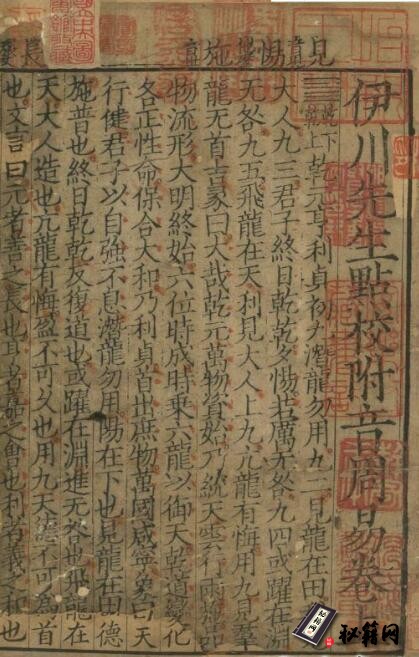 見 惕 施 長
伊川先生點校附音周易卷上
䷀乾下乾上乾元亨利貞初九潛龍勿用九二見龍在田
大人九三君子終日乾乾夕惕若厲无咎九四或躍在淵
无咎九五飛龍在天利見大人上九亢龍有悔用九見羣
龍无首吉彖曰大哉乾元萬物資始乃統天雲行雨施品
物流形大明終始六位時成時乘六龍以御天乾道變化
各正性命保合大和乃利貞首出庶物萬國咸寧象曰天
行健君子以自強不息潛龍勿用陽在下也見龍在田德
施普也終日乾乾反復道也或躍在淵進无咎也飛龍在
天大人造也亢龍有悔盈不可久也用九天德不可為首
也文言曰元者善之長也亨者嘉之會也利者義之和也
秘籍网